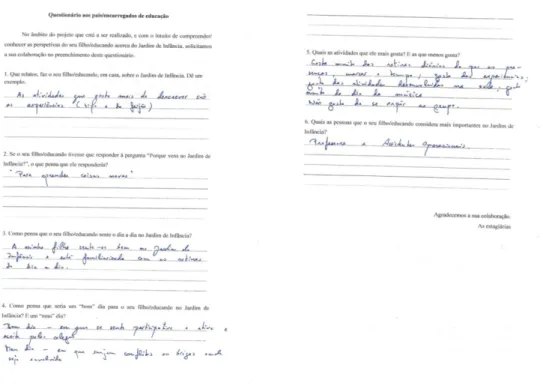 Questionário aos pais/encarregados de educação
No âmbito do projeto que está a ser realizado, e com o intuito de compreender/
conhecer as perspetivas do seu filho/educando acerca do Jardim de Infância, solicitamos
a sua colaboração no preenchimento deste questionário.
1. Que relatos, faz o seu filho/educando, em casa, sobre o Jardim de Infância. Dê um
exemplo.
As atividades que gosta mais de descrever são
as experiências (
2. Se o seu filho/educando tivesse que responder à pergunta "Porque vens ao Jardim de
Infância?", o que pensa que ele responderia?
"Para aprender coisas novas"
3. Como pensa que o seu filho/educando sente o dia a dia no Jardim de Infância?
A minha filha sente-se bem no Jardim de
Infância e está familiarizada com as rotinas
do dia a dia.
4. Como pensa que seria um "bom" dia para o seu filho/educando no Jardim de
Infância? E um "mau" dia?
Bom dia – em que se sente participativa e ativa e
aceite pelos colegas
Mau dia – em que surjam conflitos ou brigas onde
seja envolvida
5. Quais as atividades que ele mais gosta? E as que menos gosta?
Gosta muito das rotinas diárias do que as pre-
senças, marcar o tempo, gosta das experiências,
gosta das atividades desenvolvidas na sala, gosta
muito do dia da música
Não gosta de se expôr ao grupo.
6. Quais as pessoas que o seu filho/educando considera mais importantes no Jardim de
Infância?
Professora e Assistentes Operacionais.
Agradecemos a sua colaboração
As estagiárias